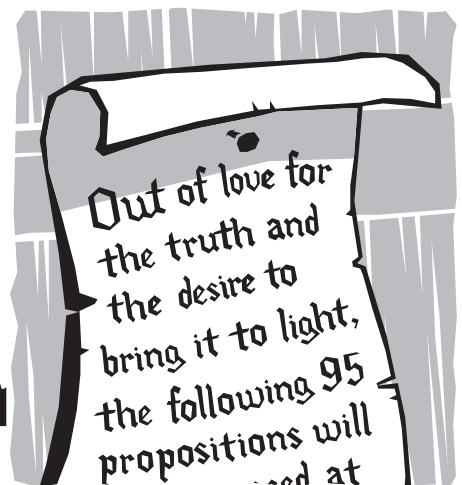 Out of love for
the truth and
the desire to
bring it to light,
the following 95
propositions will
at